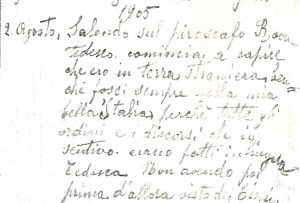 1905
2. Agosto, Salendo sul piroscafo
tedesco. cominciai a capire
che ero in terra straniera, ben
chè fossi sempre nella mia
bella Italia, perchè tutti gli
ordini e i discorsi che io
sentivo. erano fatti in lingua
Tedesca. Non avendo per
prima d'allora visto dei